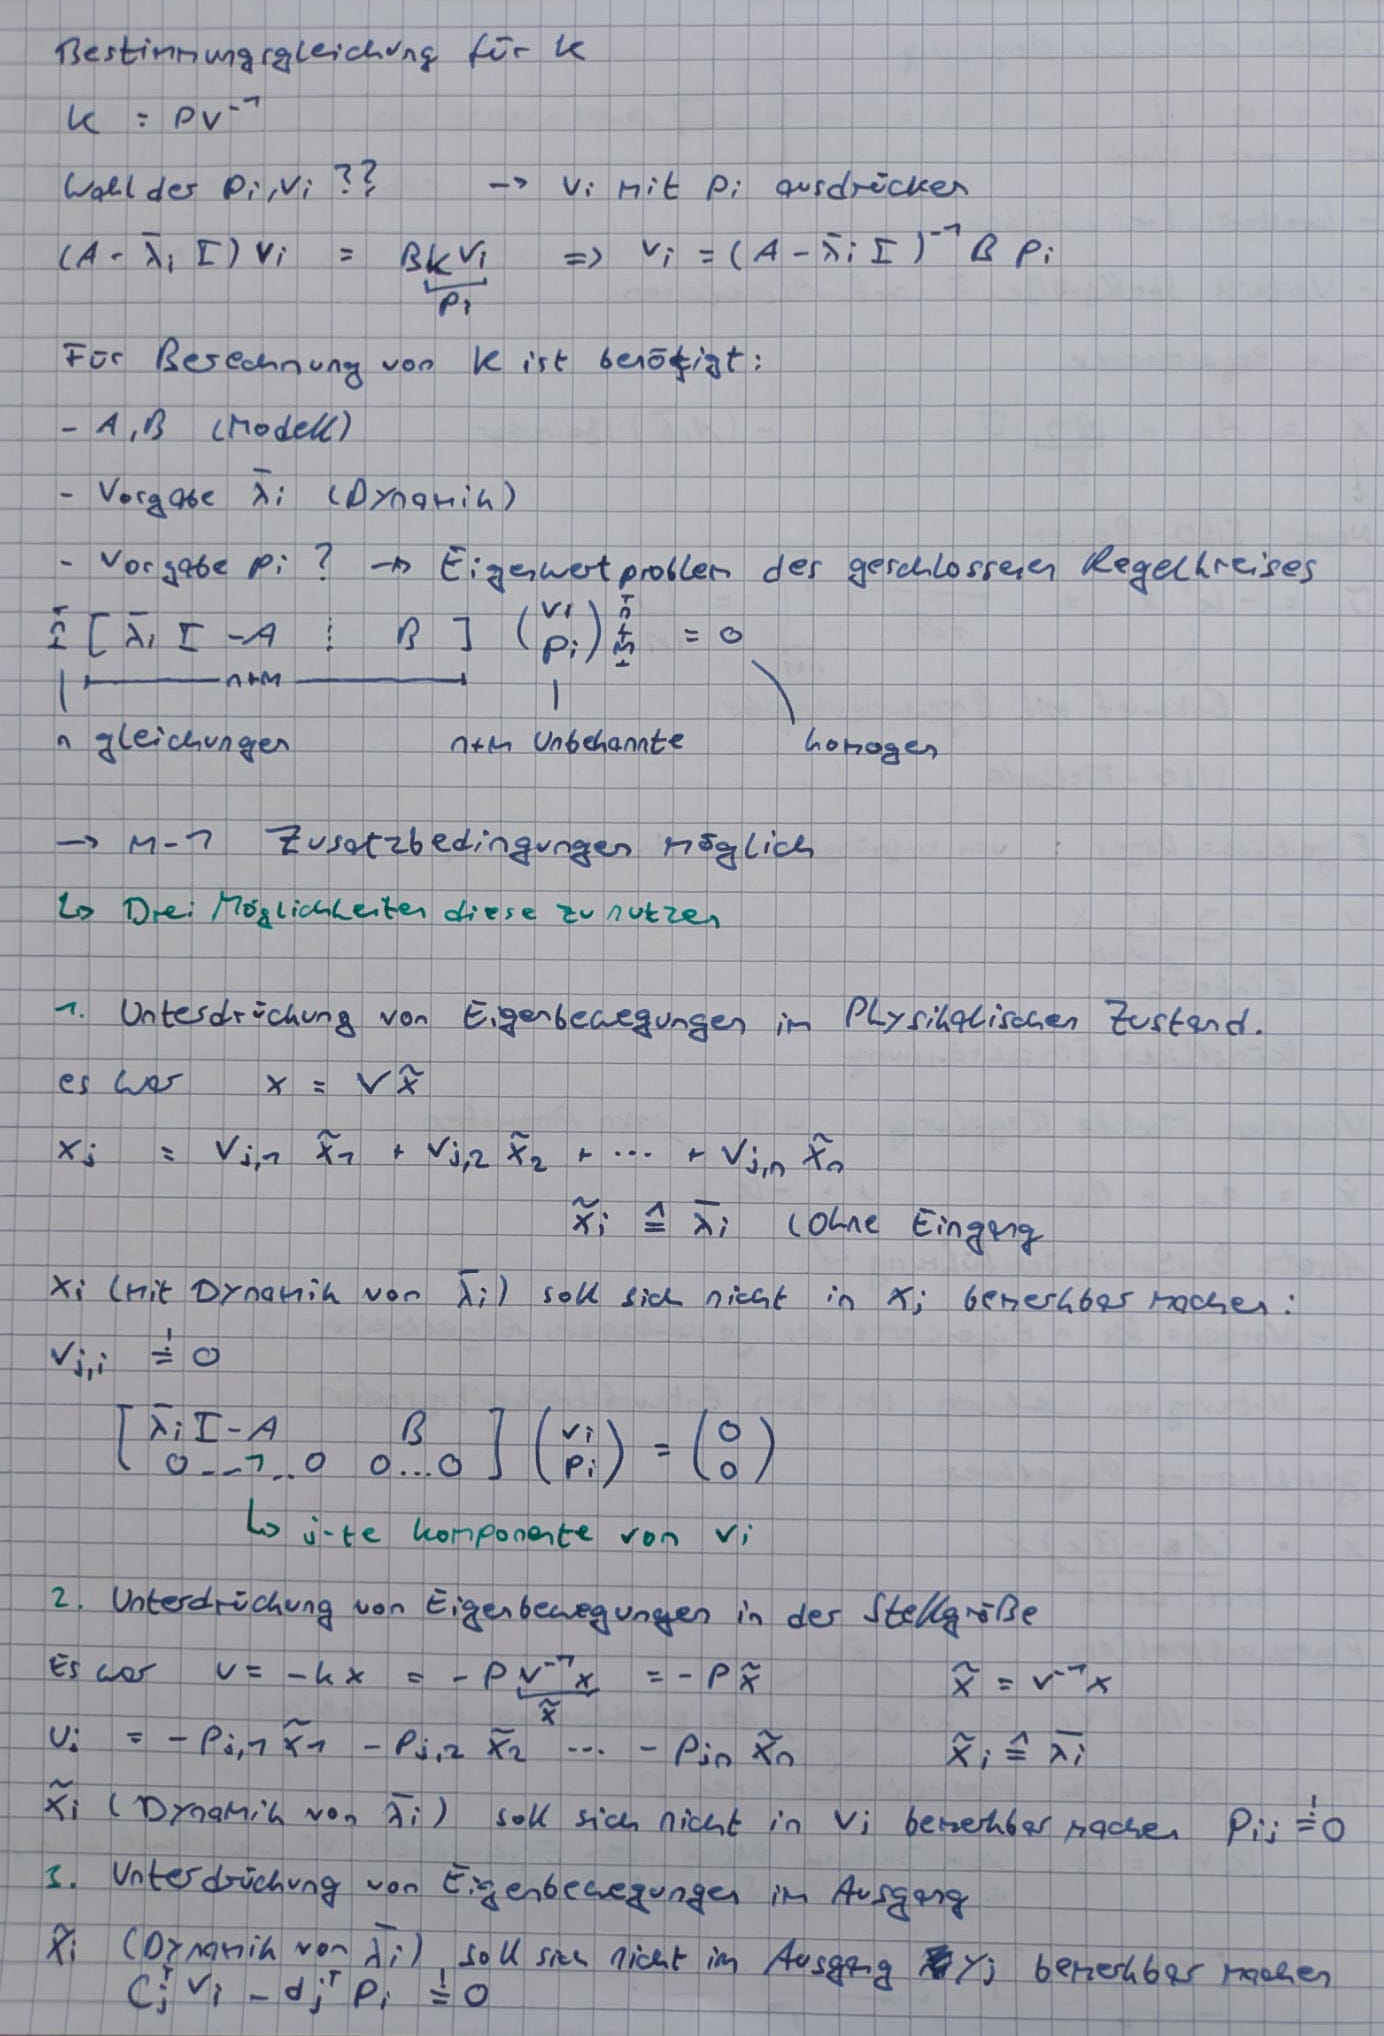 Bestimmungsgleichung für K
K = PV⁻¹
Wahl der pi, vi ?? → vi mit pi ausdrücken
(A - λ̄i I) vi = B K vi ⇒ vi = (A - λ̄i I)⁻¹ B pi
pi
Für Berechnung von K ist benötigt:
- A, B (Modell)
- Vorgabe λ̄i (Dynamik)
- Vorgabe pi ? → Eigenwertproblem des geschlossenen Regelkreises
n [ λ̄i I - A ⋮ B ] (vi pi) n+m = 0
n+m
n gleichungen n+m Unbekannte homogen
→ m-1 Zusatzbedingungen möglich
↳ Drei Möglichkeiten diese zu nutzen
1. Unterdrückung von Eigenbewegungen im Physikalischen Zustand.
es war x = V x̃
xj = Vj,1 x̃1 + Vj,2 x̃2 + ... + Vj,n x̃n
x̃i ≙ λ̄i (Ohne Eingang
xi (mit Dynamik von λ̄i) soll sich nicht in xj bemerkbar machen:
Vj,i != 0
[ λ̄i I - A B ] (vi) = (0)
[ 0 ... 1 ... 0 0 ... 0 ] (pi) (0)
↳ j-te Komponente von vi
2. Unterdrückung von Eigenbewegungen in der Stellgröße
Es war u = -kx = -P V⁻¹x = -P x̃ x̃ = V⁻¹x
x̃
uj = -Pj,1 x̃1 - Pj,2 x̃2 ... - Pjn x̃n x̃i ≙ λ̄i
x̃i (Dynamik von λ̄i) soll sich nicht in Uj bemerkbar machen Pij != 0
3. Unterdrückung von Eigenbewegungen im Ausgang
x̃i (Dynamik von λ̄i) soll sich nicht im Ausgang yj bemerkbar machen
Cjᵀ vi - djᵀ pi != 0